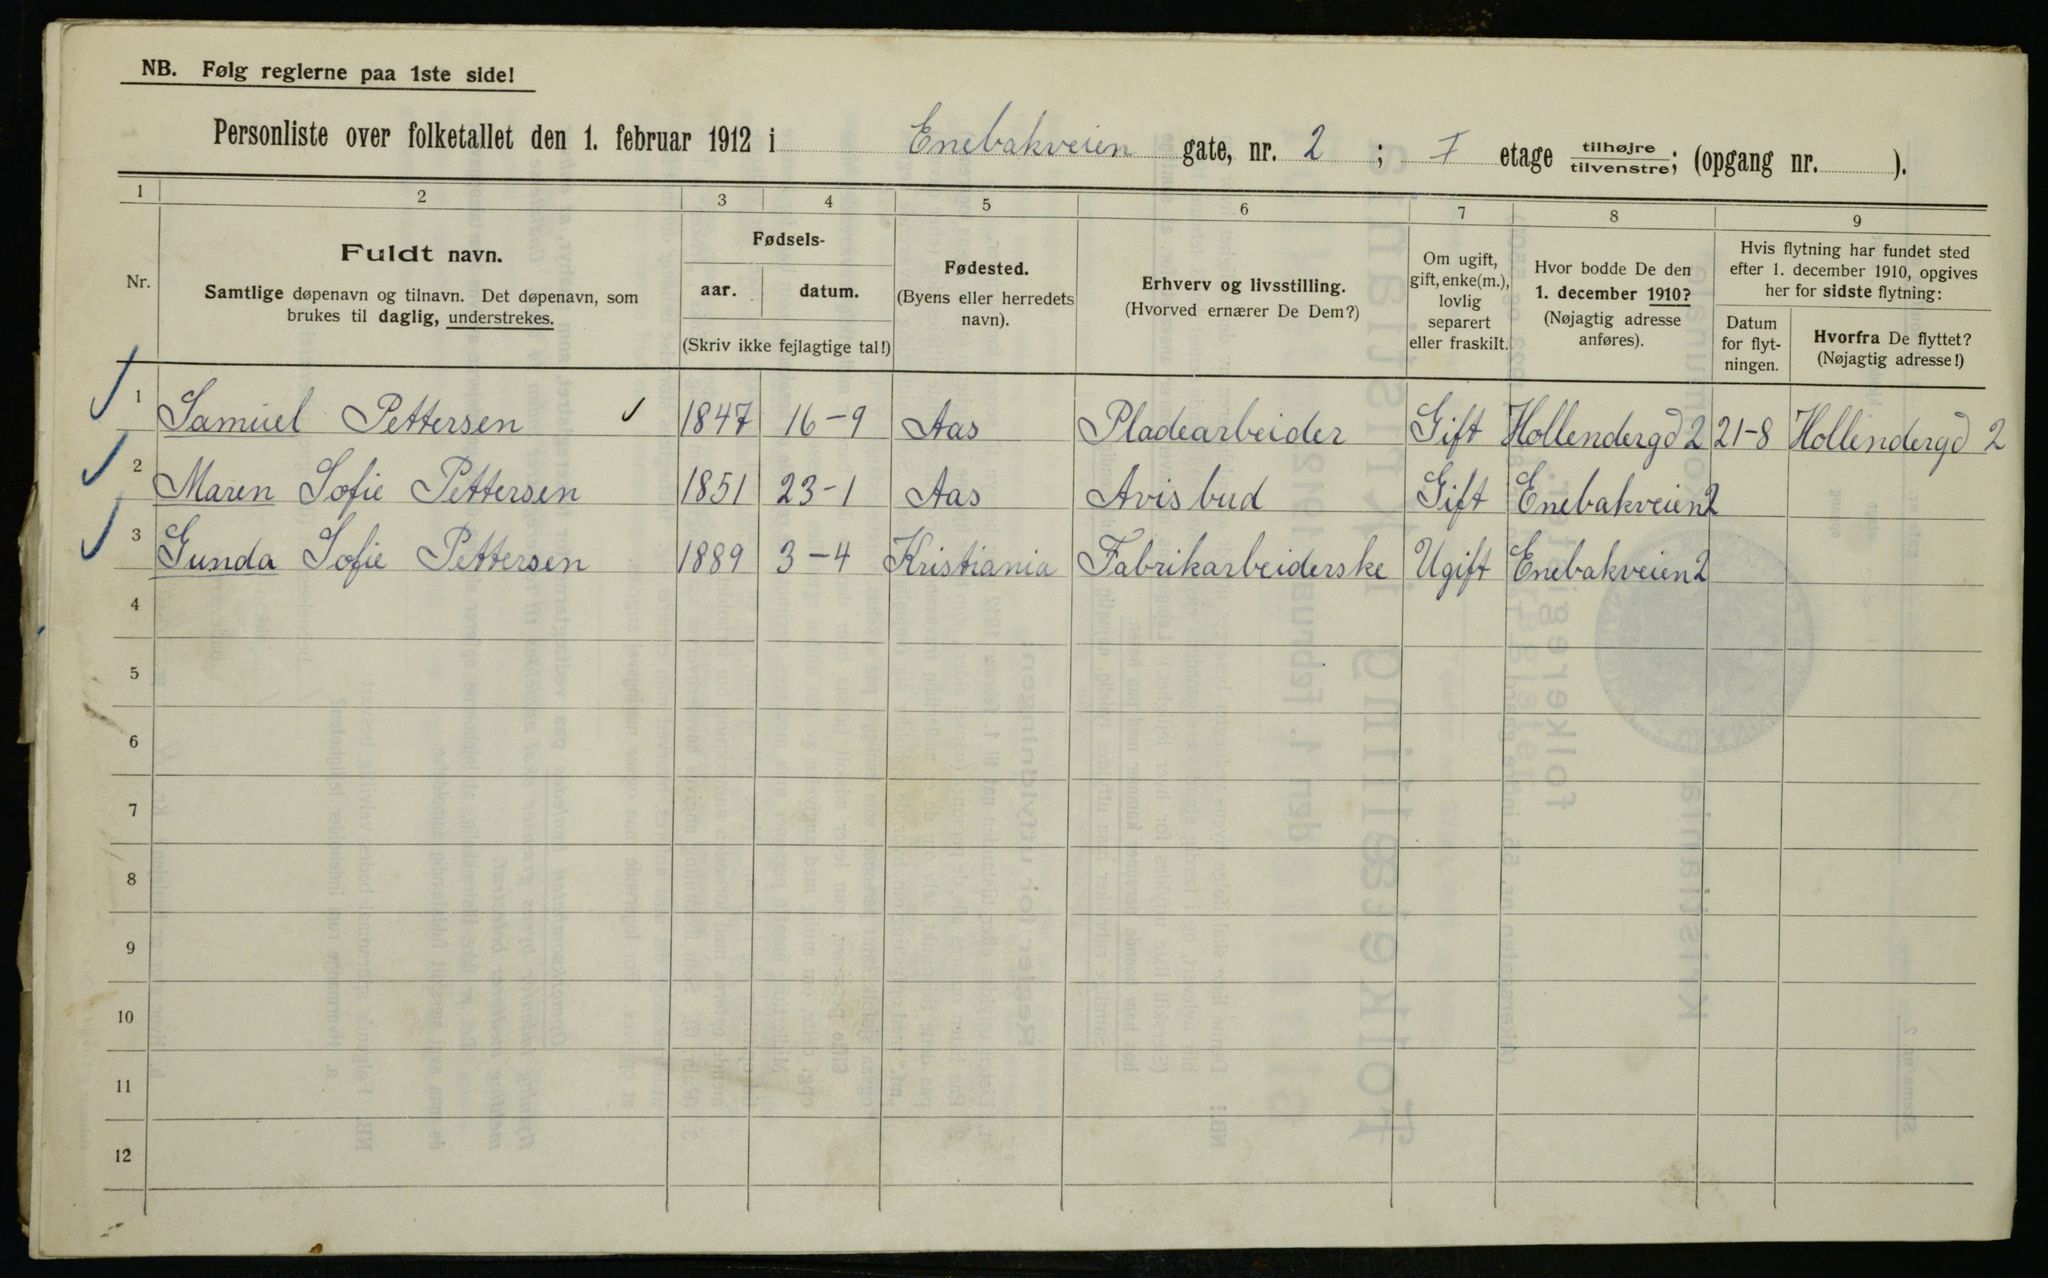 NB. Følg reglerne paa 1ste side!
Personliste over folketallet den 1. februar 1912 i Enebakveien gate, nr. 2 ; I etage tilhøjre/tilvenstre; (opgang nr. ).
1 2 3 4 5 6 7 8 9
Nr.
Fuldt navn.
Samtlige døpenavn og tilnavn. Det døpenavn, som
brukes til daglig, understrekes.
Fødsels-
aar. datum.
(Skriv ikke fejlagtige tal!)
Fødested.
(Byens eller herredets
navn).
Erhverv og livsstilling.
(Hvorved ernærer De Dem?)
Om ugift,
gift, enke(m.),
lovlig
separert
eller fraskilt.
Hvor bodde De den
1. december 1910?
(Nøjagtig adresse
anføres).
Hvis flytning har fundet sted
efter 1. december 1910, opgives
her for sidste flytning:
Datum
for flyt-
ningen.
Hvorfra De flyttet?
(Nøjagtig adresse!)
1 Samuel Pettersen 1847 16-9 Aas Pladearbeider Gift Hollendergd 2 21-8 Hollendergd 2
2 Maren Sofie Pettersen 1851 23-1 Aas Avisbud Gift Enebakveien 2
3 Gunda Sofie Pettersen 1889 3-4 Kristiania Fabrikarbeiderske Ugift Enebakveien 2
4
5
6
7
8
9
10
11
12